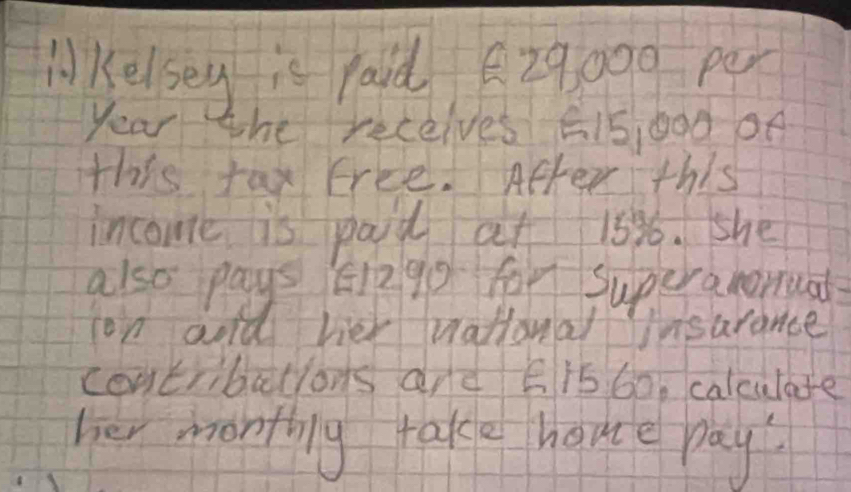 i.) Kelsey is paid £29,000 per
year she receives £15,000 of
this tax free. After this
income is paid at 15%. she
also pays £1290 for superannuat-
ion and her national insurance
contributions are £1560. calculate
her monthly take home pay'.